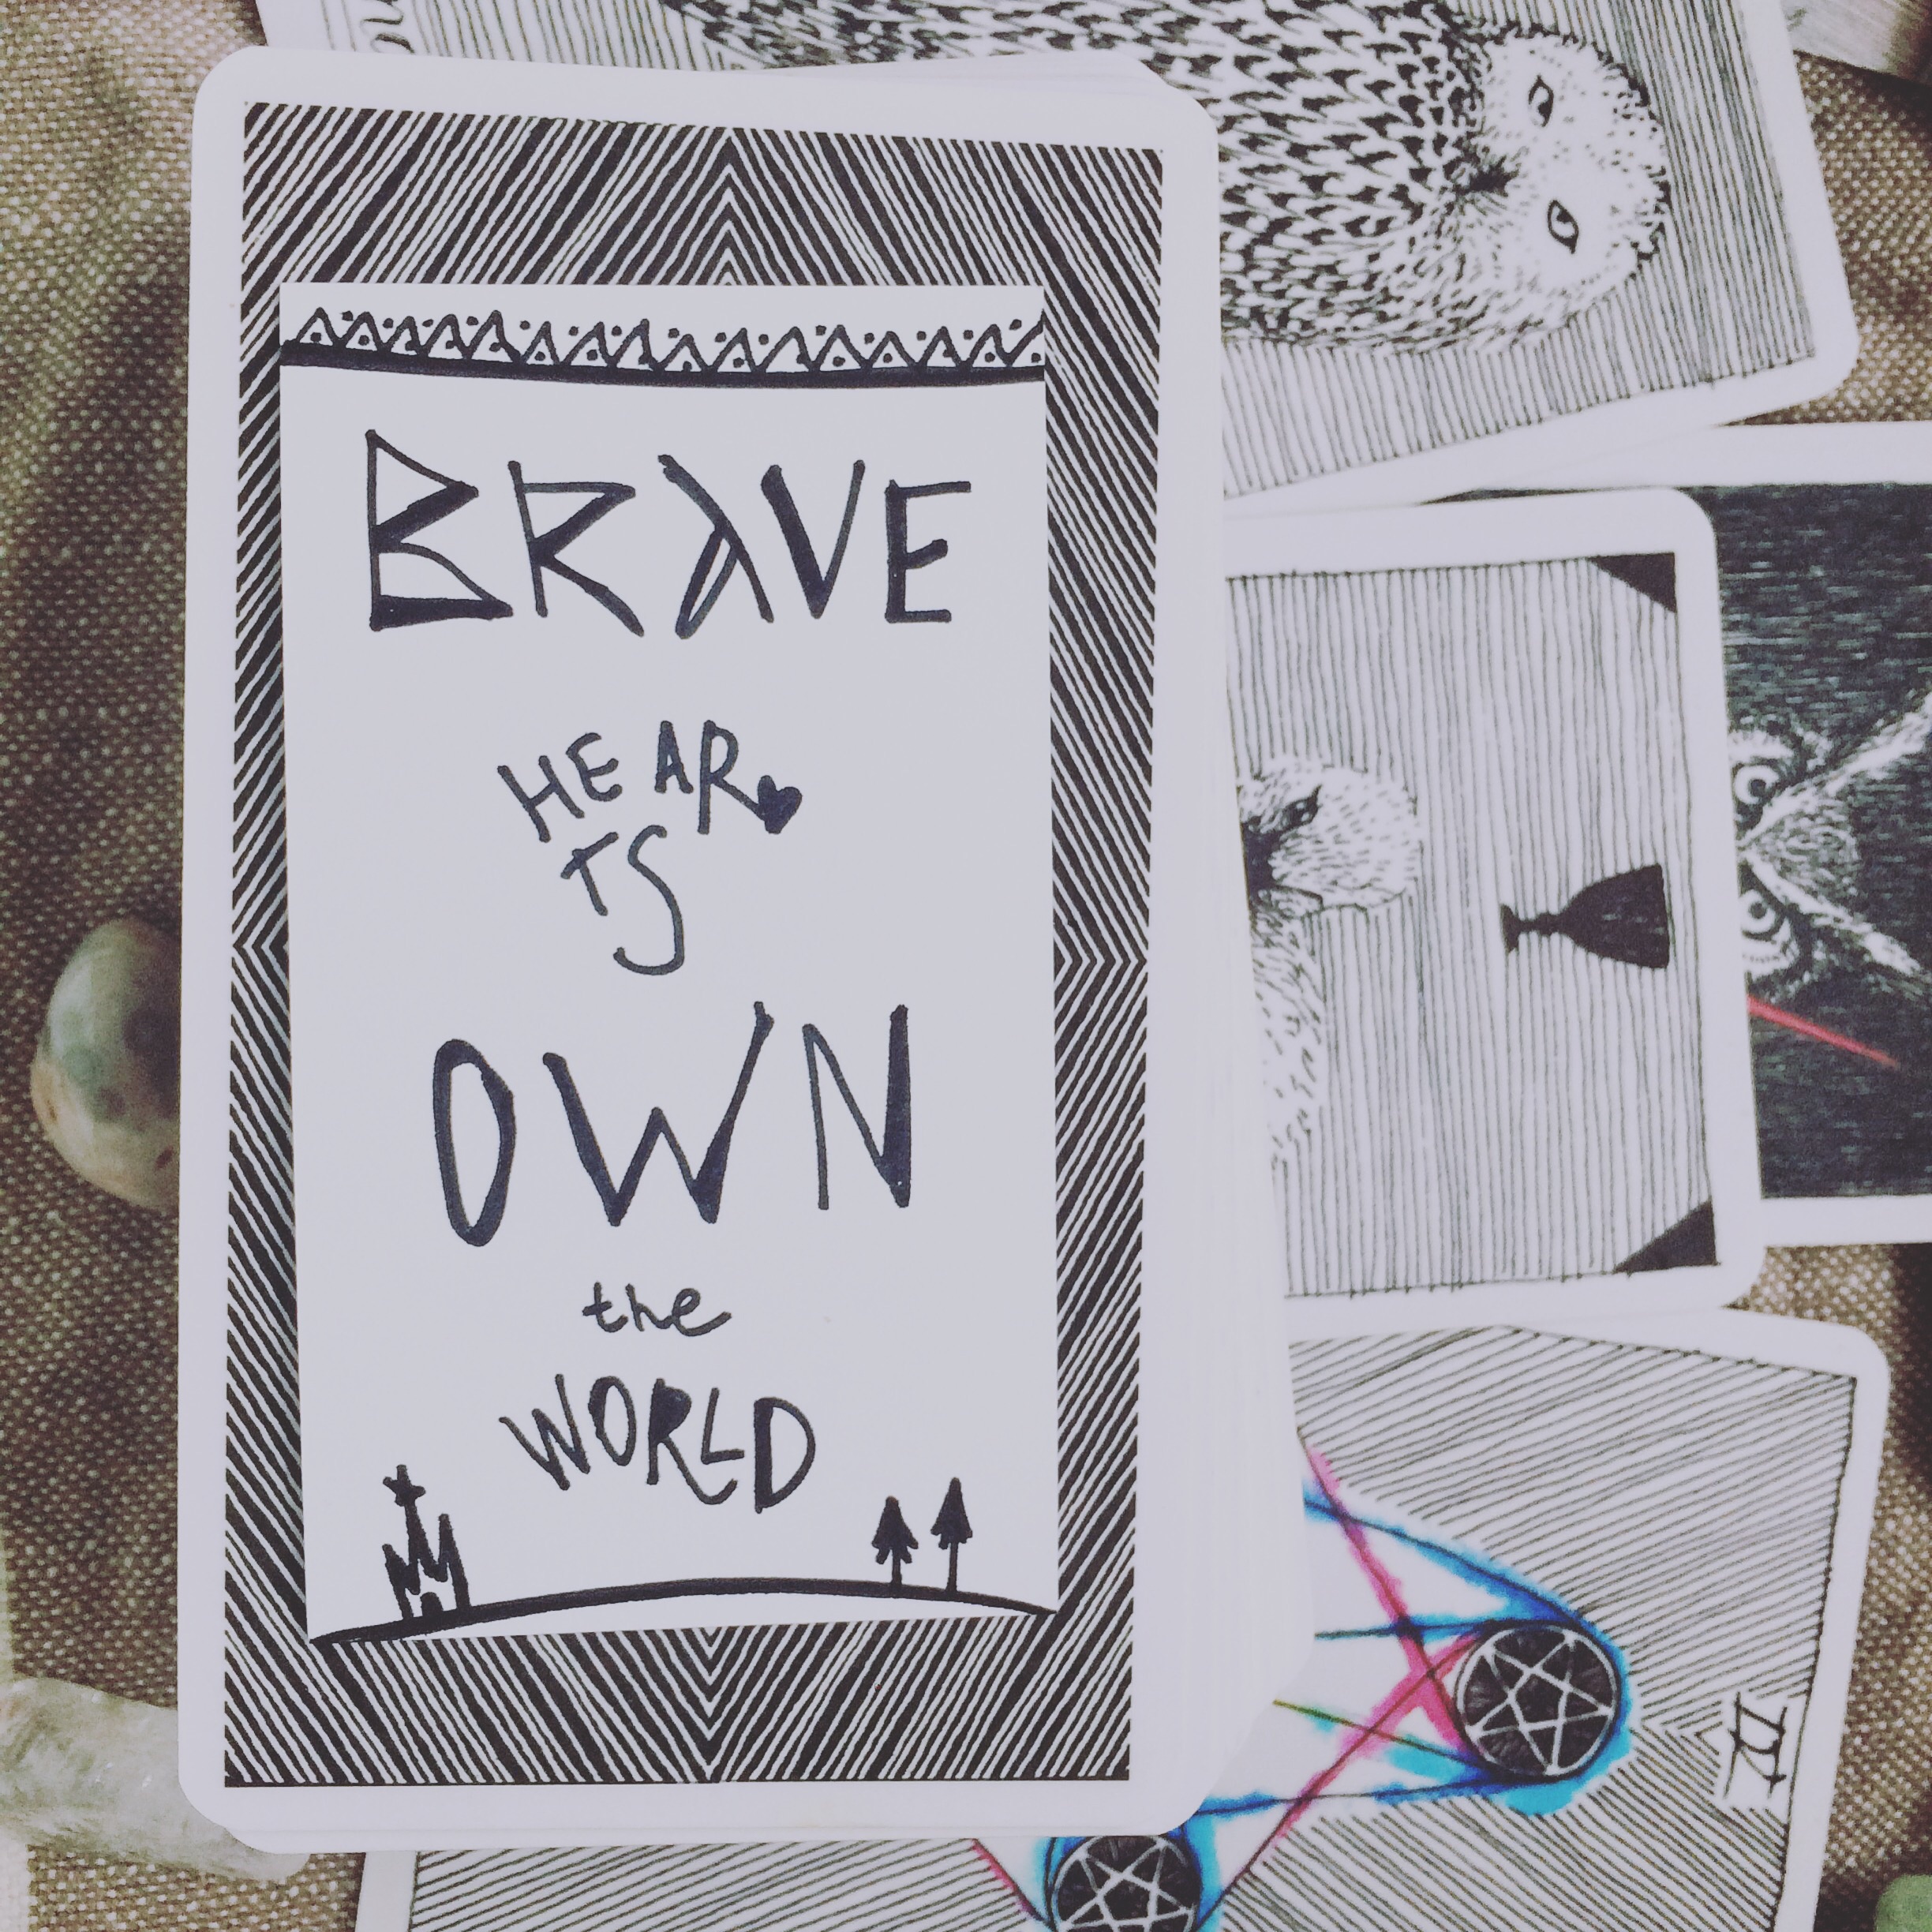 BRAVE
HEAR
TS
OWN
the
WORLD